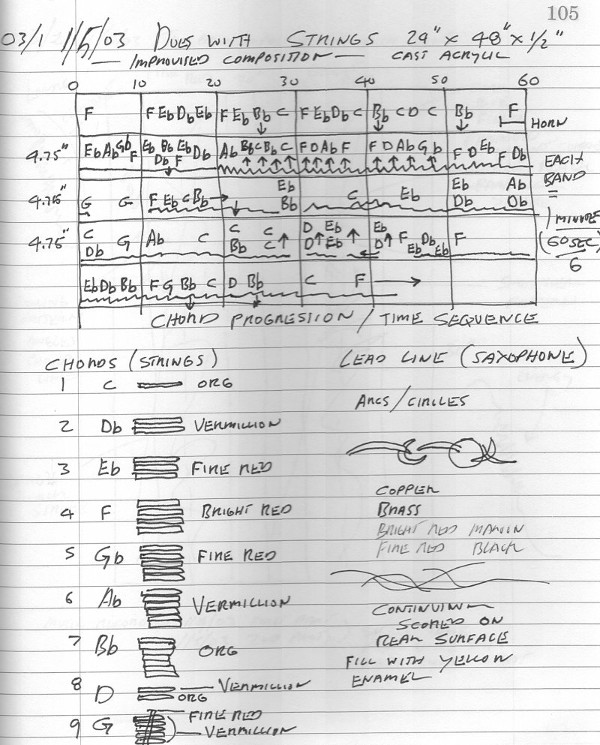 105
03/1 1/5/03 DUES WITH STRINGS 29" x 48" x 1/2"
— IMPROVISED COMPOSITION — CAST ACRYLIC
0 10 20 30 40 50 60
F F Eb Db Eb F Eb Bb C F Eb Db C Bb C D C Bb F
HORN
4.75" Eb Ab Gb F Eb Bb Eb Db Db F Ab Bb C Bb C F D Ab F F D Ab G b F D Eb F Db EACH
BAND
=
4.75" G G F Eb C Bb Eb Bb C Eb Eb Db Ab Db
1 MINUTE
(60 SEC)
6
4.75" C Db G Ab C C Bb C C D D Eb Eb Eb D F Eb Db Eb F
Eb Db Bb F G Bb C D Bb C F
CHORD PROGRESSION / TIME SEQUENCE
CHORDS (STRINGS) LEAD LINE (SAXOPHONE)
1 C ORG
ARCS/CIRCLES
2 Db VERMILLION
3 Eb FIRE RED
COPPER
4 F BRIGHT RED BRASS
BRIGHT RED
5 Gb FIRE RED FIRE RED BLACK
6 Ab VERMILLION
SCORED ON
7 Bb ORG REAR SURFACE
FILL WITH YELLOW
8 D VERMILLION ENAMEL
ORG
9 G FIRE RED
VERMILLION